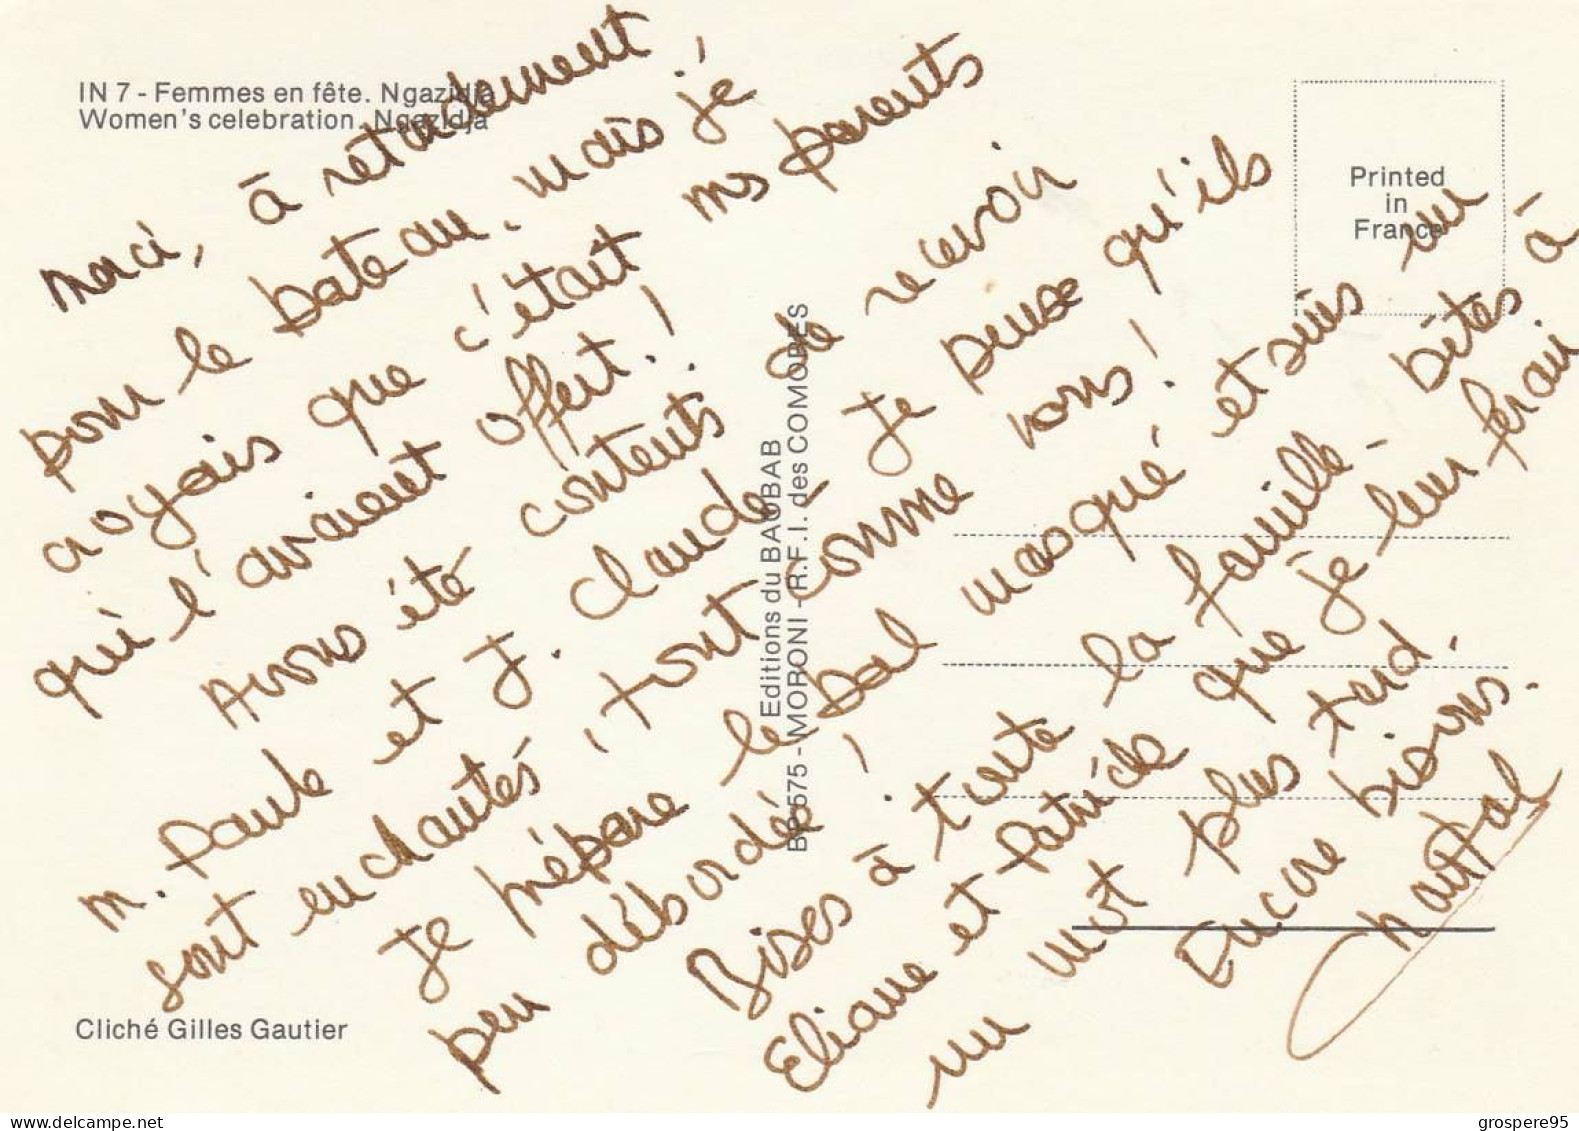 IN 7 - Femmes en fête. Ngazidja
Women's celebration. Ngazidja
Printed
in
France
merci, à retardement
pour le bateau. mais je
croyais que c'était ms parents
qui l'avaient offert. !
Avons été contents de recevoir
m. Paule et J. Claude. Je pense qu'ils
sont enchantés, tout comme vous !
Je prépare le bal masqué et suis un
peu débordée !
Bises à toute la famille - bêtes à
Eliane et Patrick que je leur ferai
un mot plus tard.
Encore bisous.
Chantal
Editions du BAOBAB
BP 575 - MORONI - R.F.I. des COMORES
Cliché Gilles Gautier
delcampe.net
grospere95